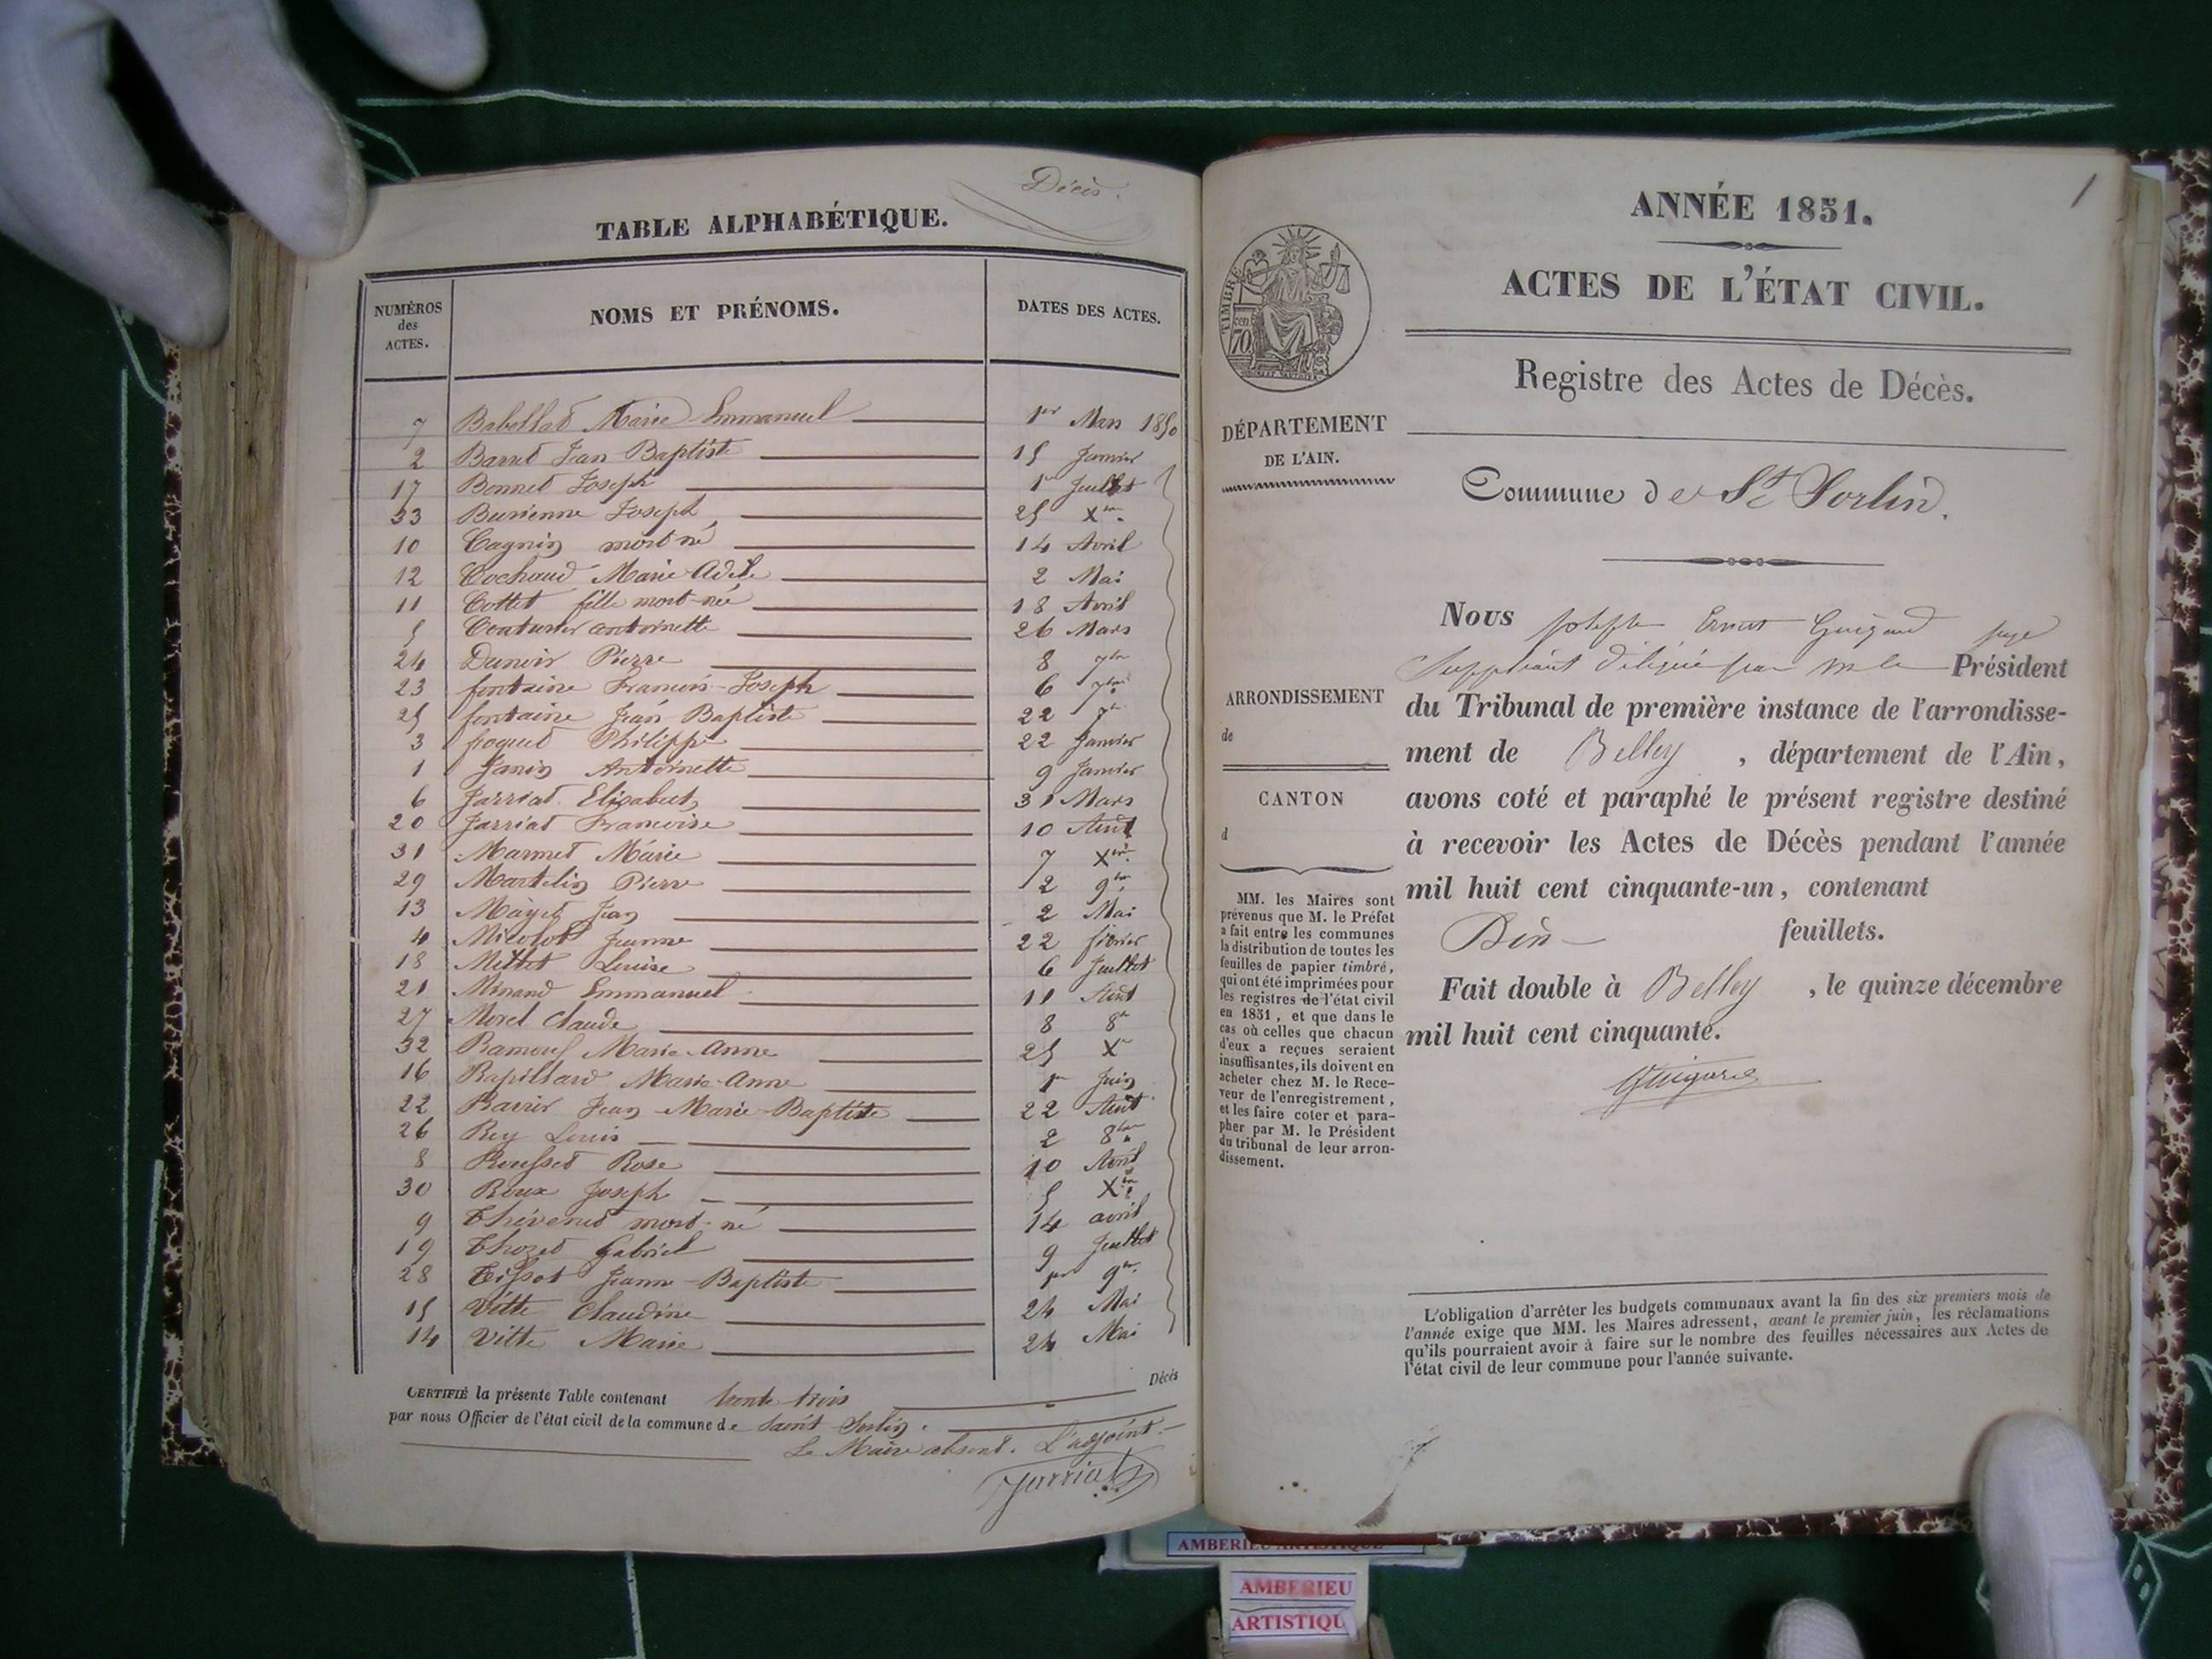 Décès.
TABLE ALPHABÉTIQUE.
NUMÉROS des ACTES. NOMS ET PRÉNOMS. DATES DES ACTES.
7 Babollat Marie Emmanuel 1er Mars 1850
2 Barret Jean Baptiste 15 Janvier
17 Bonnet Joseph 1er Juillet
33 Burienne Joseph 25 Xre
10 Cagnin mort né 14 Avril
12 Cochaud Marie Adèle 2 Mai
11 Cottet fille mort-née 18 Avril
5 Couturier antoinette 26 Mars
24 Dunoir Pierre 8 7bre
23 fontaine Francois-Joseph 6 7bre
25 fontaine Jean Baptiste 22 7bre
3 froquet Philippe 22 Janvier
1 Janin Antoinette 9 Janvier
6 Jarriat Elisabeth 31 Mars
20 Jarriat Francoise 10 Aout
31 Marmet Marie 7 Xbre
29 Martelin Pierre 12 9bre
13 Mayet Jean 2 Mai
4 Micolot Jeanne 22 février
18 Mettet Louise 6 Juillet
21 Minand Emmanuel 11 Aout
27 Morel Claude 8 8bre
32 Marie-Anne 25 Xre
16 Rapillard Marie-Anne 1er Juin
22 Jean-Marie-Baptiste 22 Aout
26 Rey Louis 2 8bre
8 Rousset Rose 10 Avril
30 Roux Joseph 5 Xbre
9 Thévenet mort-né 14 avril
19 Thozet Gabriel 9 Juillet
28 Tissot Jeanne-Baptiste 1er 9bre
15 Vitte Claudine 24 Mai
14 Vitte Marie 24 Mai
CERTIFIÉ la présente Table contenant trente trois Décès
par nous Officier de l'état civil de la commune de Saint Sorlin.
Le Maire absent. L'adjoint.
Jarriat
1
ANNÉE 1851.
ACTES DE L'ÉTAT CIVIL.
Registre des Actes de Décès.
TIMBRE
70
DÉPARTEMENT
DE L'AIN.
Commune de St Sorlin.
Nous Joseph Ernest Guigard juge
Suppléant délégué par m le Président
du Tribunal de première instance de l'arrondisse-
ment de Belley, département de l'Ain,
avons coté et paraphé le présent registre destiné
à recevoir les Actes de Décès pendant l'année
mil huit cent cinquante-un, contenant
feuillets.
Fait double à Belley, le quinze décembre
mil huit cent cinquante.
ARRONDISSEMENT
de
CANTON
d
MM. les Maires sont
prévenus que M. le Préfet
a fait entre les communes
la distribution de toutes les
feuilles de papier timbré,
qui ont été imprimées pour
les registres de l'état civil
en 1851, et que dans le
cas où celles que chacun
d'eux a reçues seraient
insuffisantes, ils doivent en
acheter chez M. le Rece-
veur de l'enregistrement,
et les faire coter et para-
pher par M. le Président
du tribunal de leur arron-
dissement.
L'obligation d'arrêter les budgets communaux avant la fin des six premiers mois de
l'année exige que MM. les Maires adressent, avant le premier juin, les réclamations
qu'ils pourraient avoir à faire sur le nombre des feuilles nécessaires aux Actes de
l'état civil de leur commune pour l'année suivante.
AMBERIEU ARTISTIQUE
AMBERIEU
ARTISTIQU